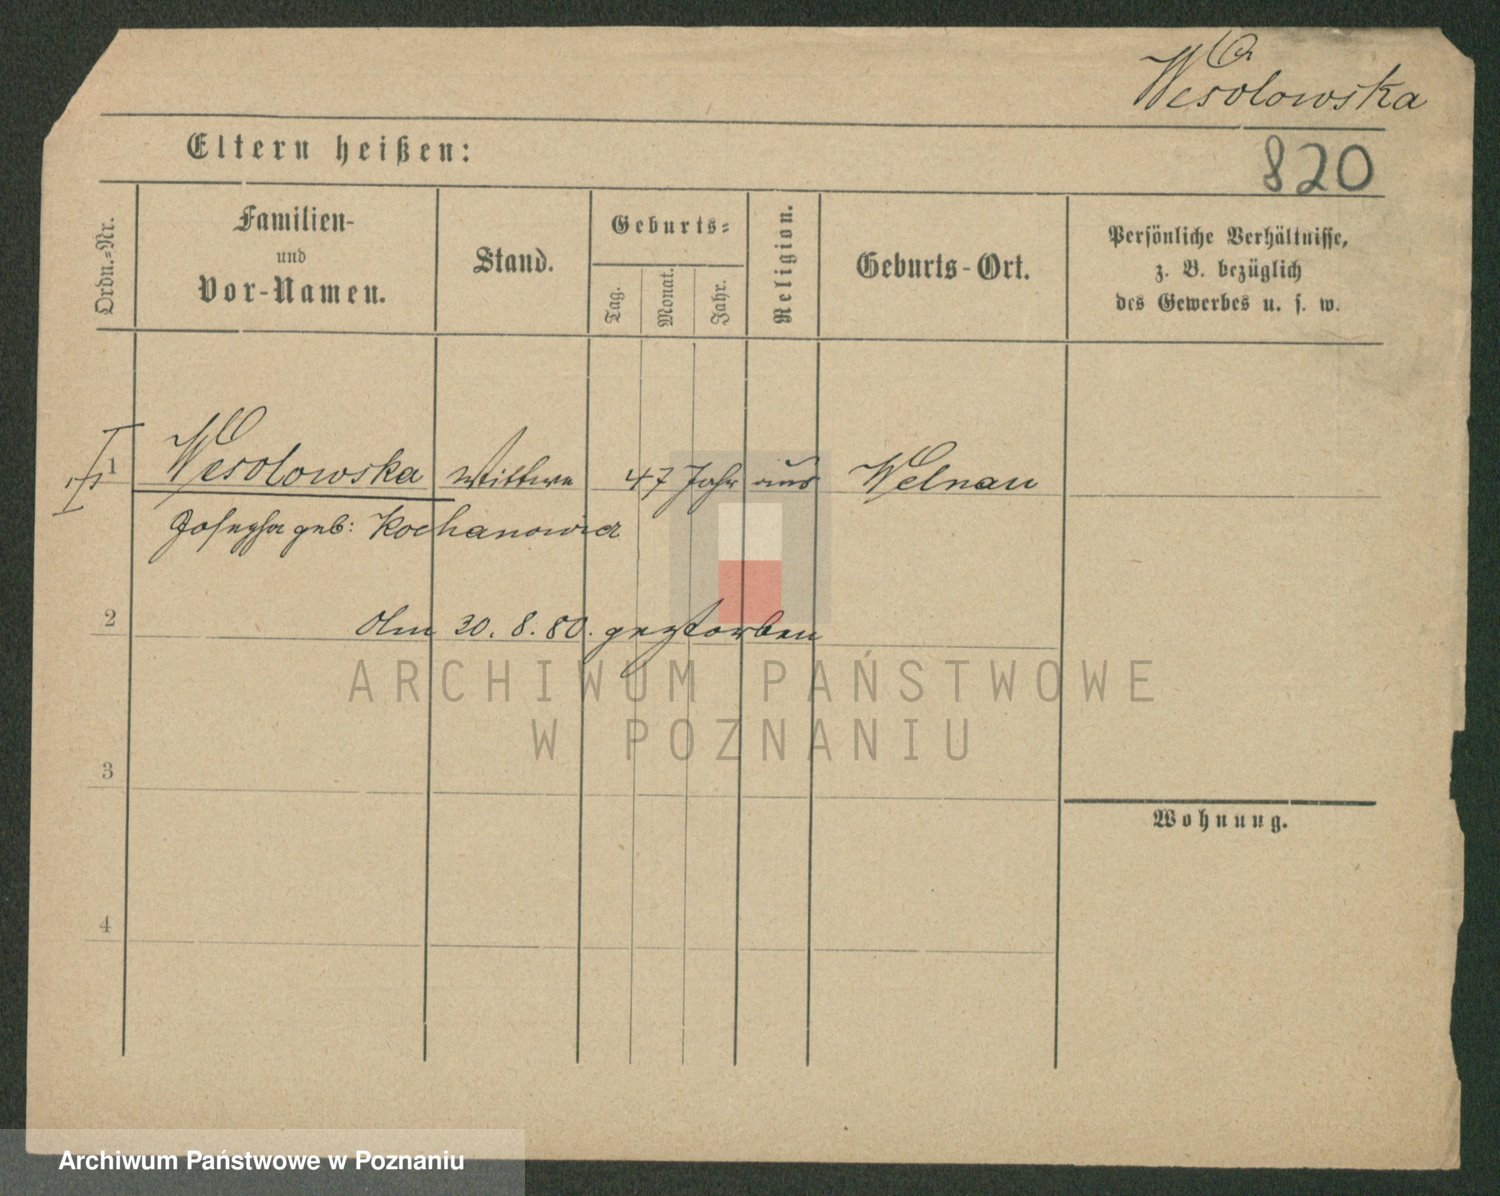 Wesolowska
820
Eltern heißen:
Ordn.-Nr.
Familien-
und
Vor-Namen.
Stand.
Geburts-
Tag.
Monat.
Jahr.
Religion.
Geburts-Ort.
Persönliche Verhältnisse,
z. B. bezüglich
des Gewerbes u. s. w.
1 Wesolowska Wittwe 47 Jahr aus Welnau
Josepha geb: Kochanowicz
2 Am 30. 8. 80. gestorben
ARCHIWUM PAŃSTWOWE
W POZNANIU
3
Wohnung.
4
Archiwum Państwowe w Poznaniu